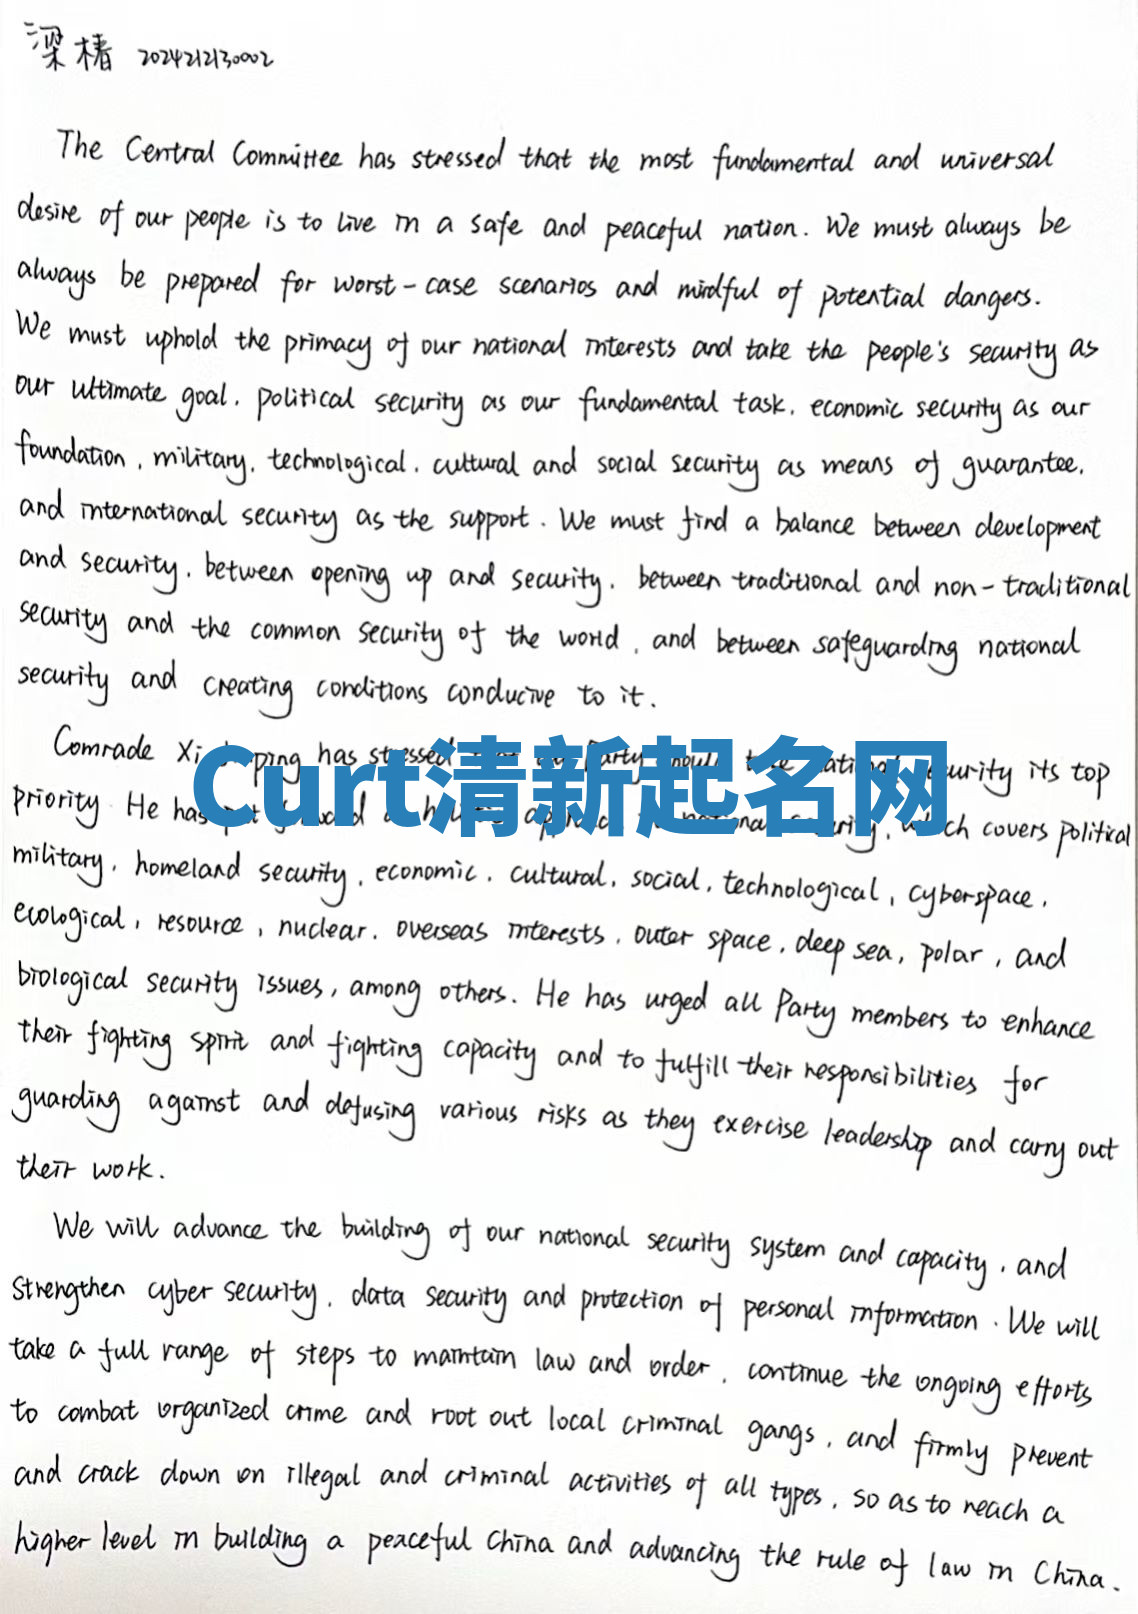 梁椿 2024212130002
The Central Committee has stressed that the most fundamental and universal
desire of our people is to live in a safe and peaceful nation. We must always be
always be prepared for worst-case scenarios and mindful of potential dangers.
We must uphold the primacy of our national interests and take the people's security as
our ultimate goal, political security as our fundamental task, economic security as our
foundation, military, technological, cultural and social security as means of guarantee,
and international security as the support. We must find a balance between development
and security, between opening up and security, between traditional and non-traditional
security and the common security of the world, and between safeguarding national
security and creating conditions conducive to it.
Comrade Xi has stressed Party national security its top
Curt清新起名网
priority. He has national security, which covers political
military, homeland security, economic, cultural, social, technological, cyberspace,
ecological, resource, nuclear, overseas interests, outer space, deep sea, polar, and
biological security issues, among others. He has urged all Party members to enhance
their fighting spirit and fighting capacity and to fulfill their responsibilities for
guarding against and defusing various risks as they exercise leadership and carry out
their work.
We will advance the building of our national security system and capacity, and
strengthen cyber security, data security and protection of personal information. We will
take a full range of steps to maintain law and order, continue the ongoing efforts
to combat organized crime and root out local criminal gangs, and firmly prevent
and crack down on illegal and criminal activities of all types, so as to reach a
higher level in building a peaceful China and advancing the rule of law in China.